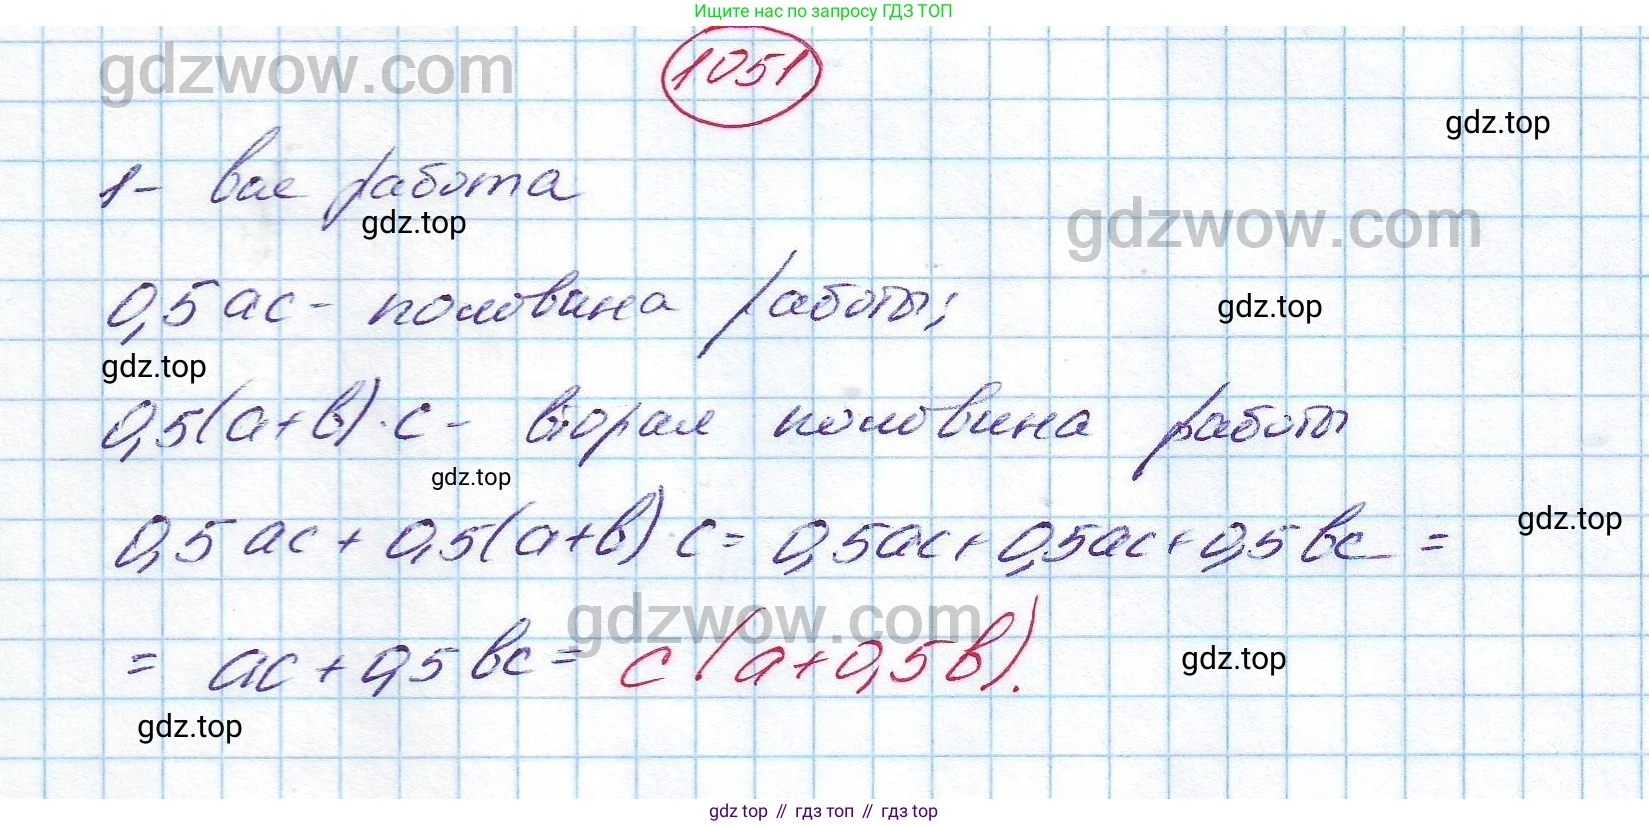 Ищите нас по запросу ГДЗ ТОП
gdzwow.com
1051
gdz.top
1- вся работа
gdz.top
gdzwow.com
0,5ac - половина работы;
gdz.top
gdz.top
0,5(a+b)·c - вторая половина работы
gdz.top
0,5ac + 0,5(a+b) c = 0,5ac + 0,5ac + 0,5bc =
gdz.top
gdzwow.com
= ac + 0,5bc = c (a+0,5b).
gdz.top
gdz.top
gdz top // гдз топ // gdz top